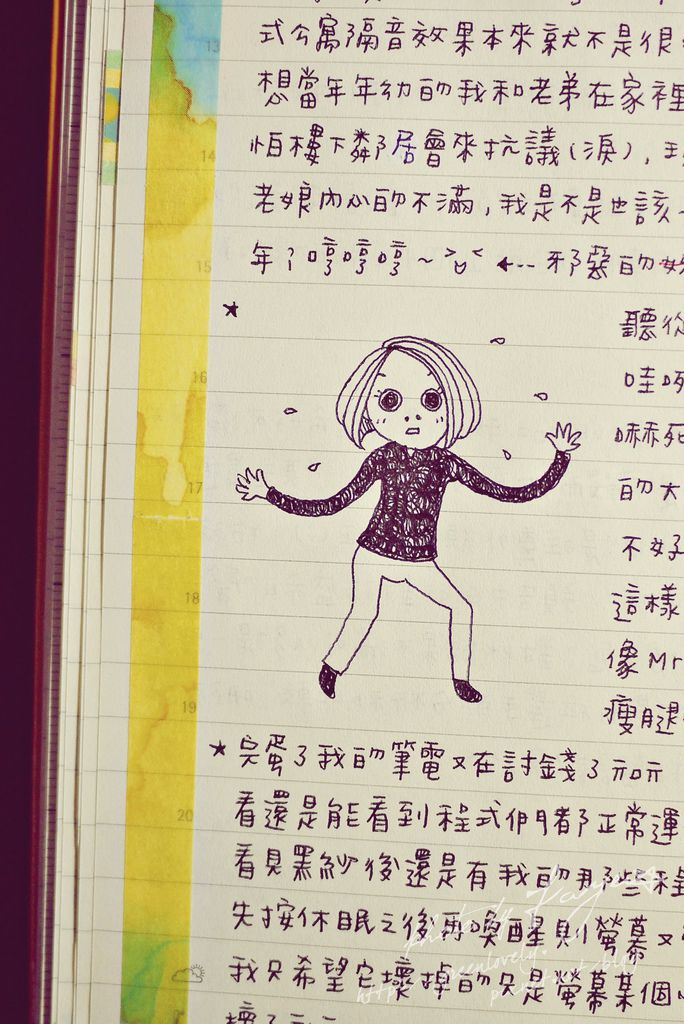 式公寓隔音效果本來就不是很
想當年年幼的我和老弟在家裡
怕樓下鄰居會來抗議(淚),
老娘內心的不滿,我是不是也該
年?哼哼哼~>▽< ←--- 邪惡的
★
聽從
哇
嚇死
的大
不好
這樣
像Mr
瘦腿
★完蛋了我的筆電又在討錢了
看還是能看到程式們都正常運
看見黑紗後還是有我的那些程
先按休眠之後再喚醒則螢幕又
我只希望它壞掉的只是螢幕某個
壞了
13
14
15
16
17
18
19
20